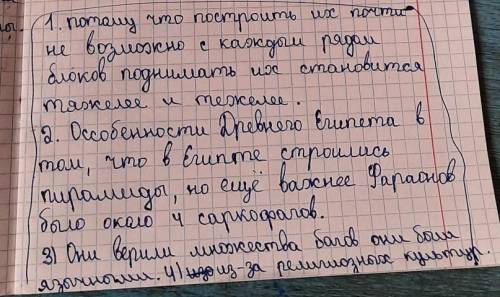 1. потому что построить их почти
не возможно с каждым рядом
блоков поднимать их становится
тяжелее и тежелее.
2. Оссобенности Древнего Египета в
том, что в Египте строились
пирамиды, но ещё важнее Фараонов
было около 4 саркофагов.
3) Они верили множества богов они были
язычники. 4) из-за религиозных культур.